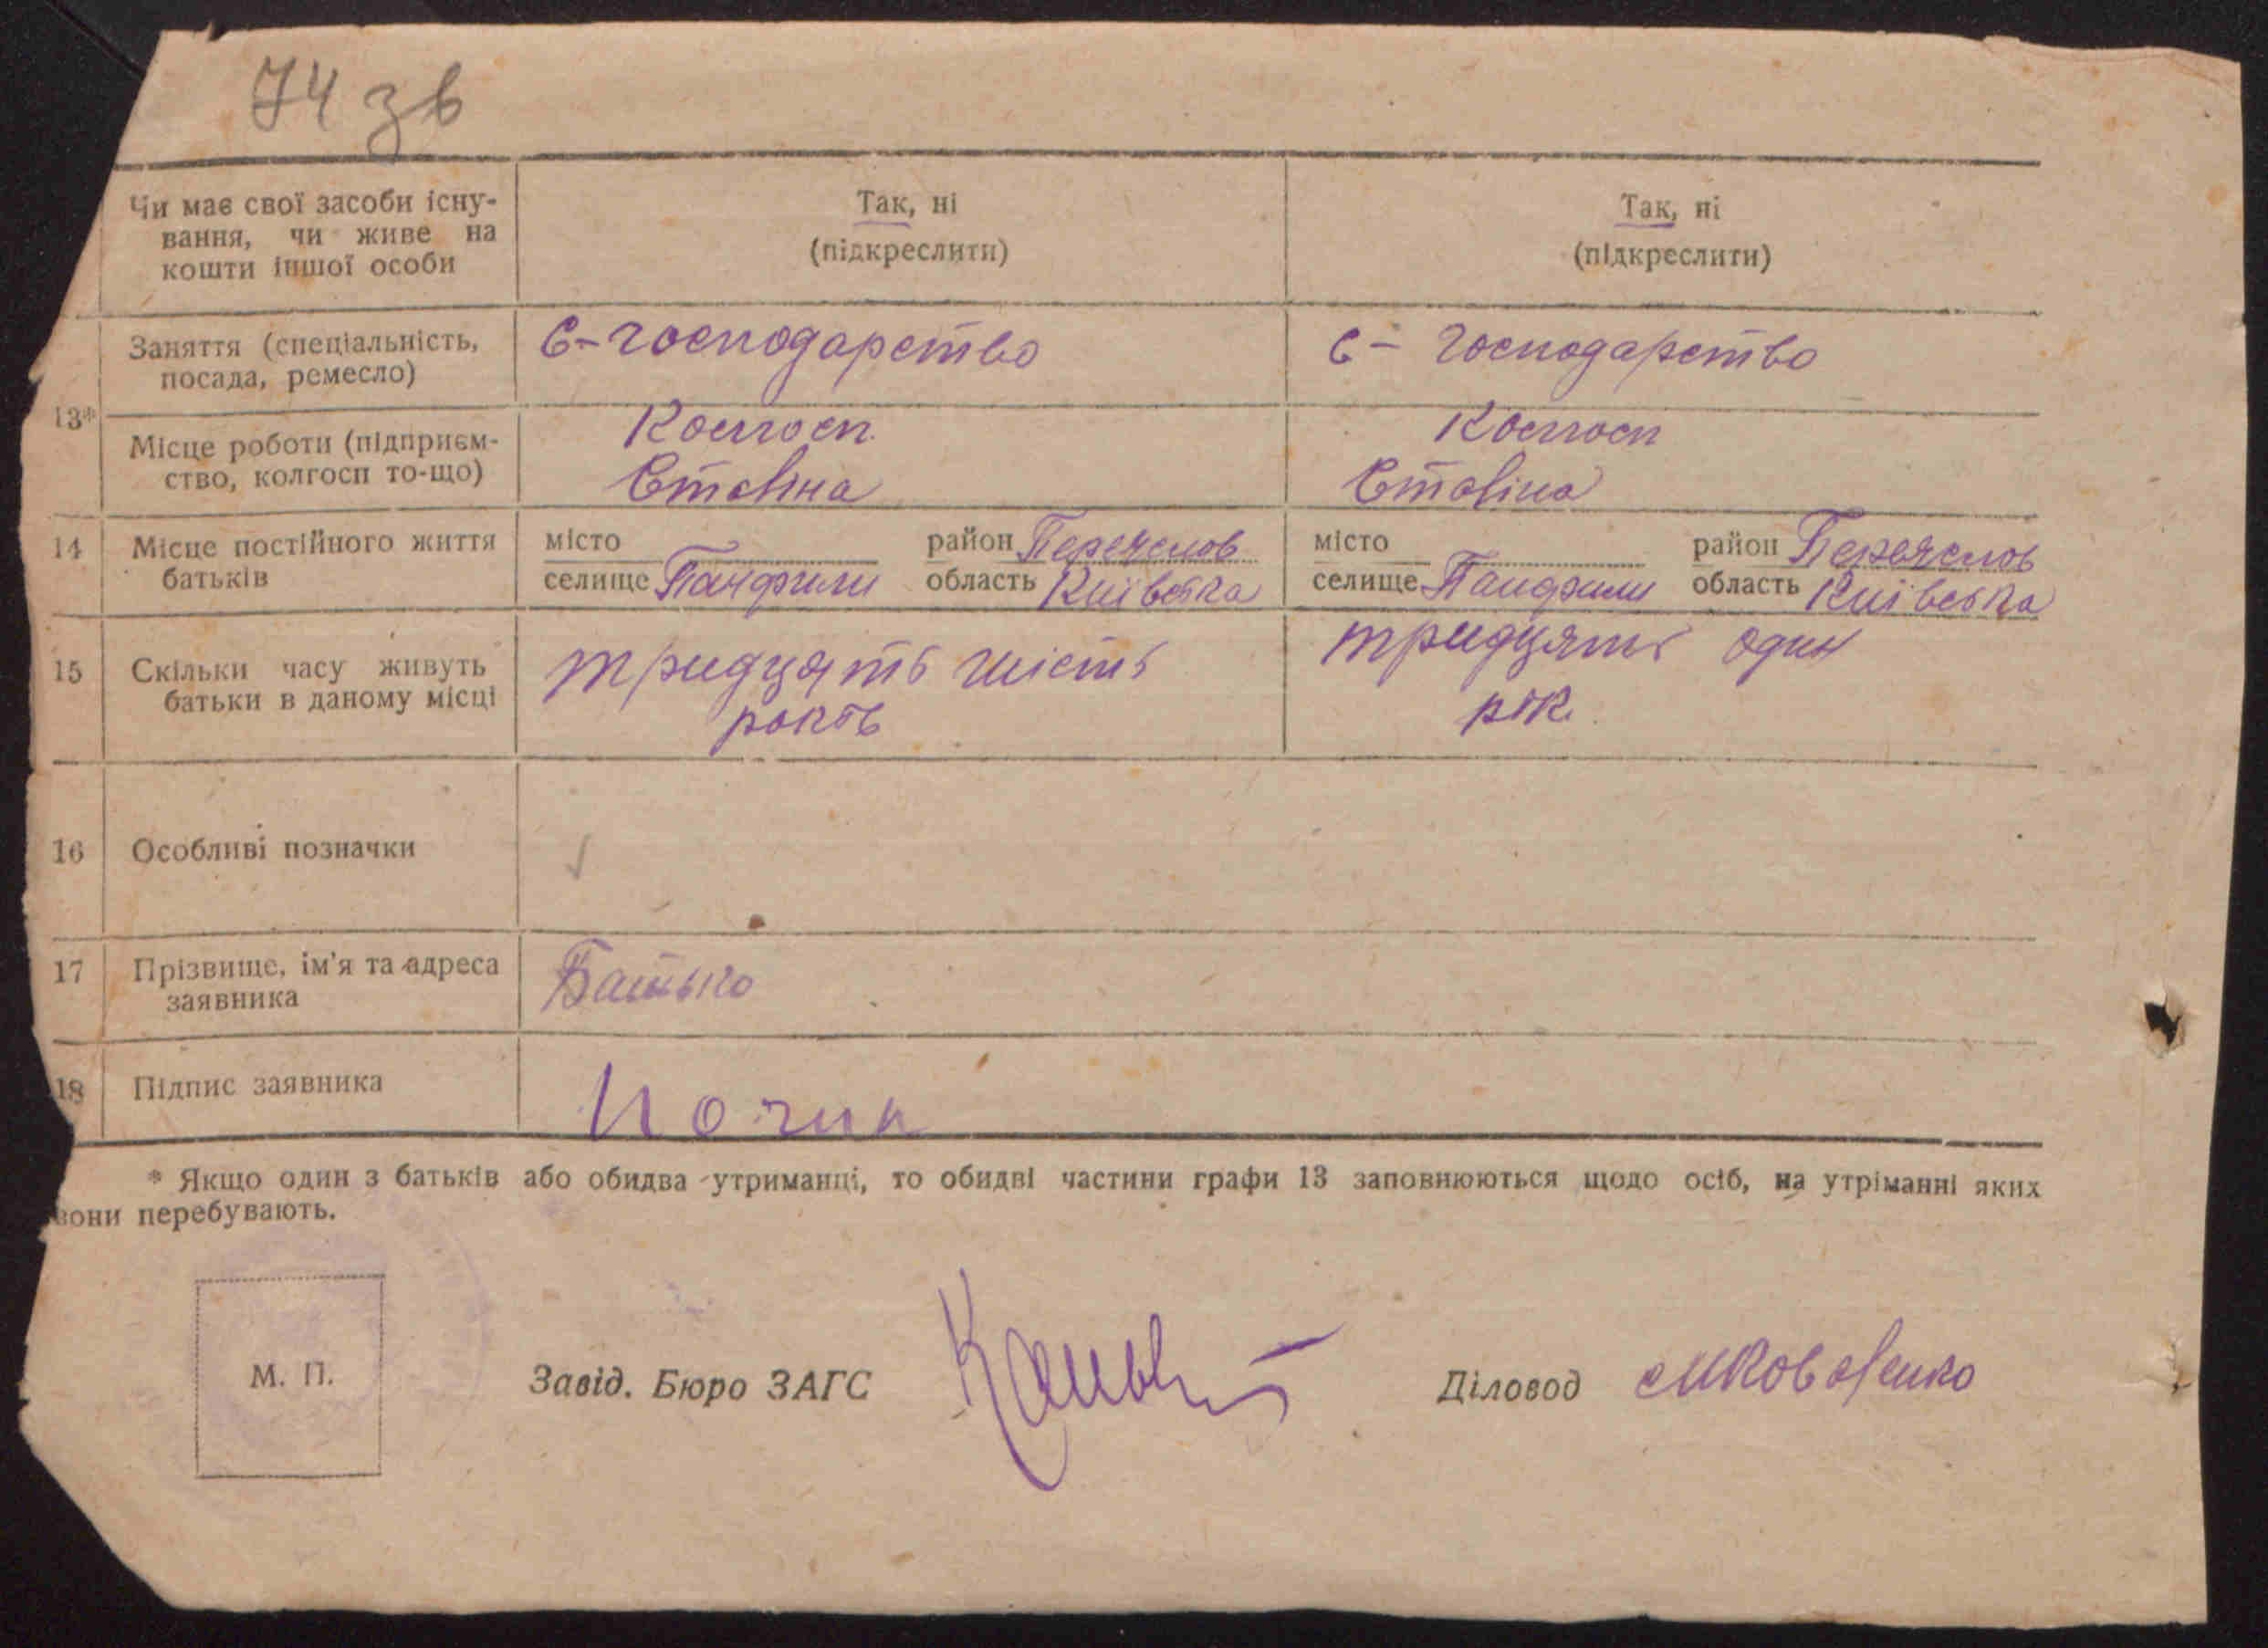 74 зв
Чи має свої засоби існу-
вання, чи живе на
кошти іншої особи
Так, ні
(підкреслити)
Так, ні
(підкреслити)
13*
Заняття (спеціальність,
посада, ремесло)
С-господарство
с-господарство
Місце роботи (підприєм-
ство, колгосп то-що)
Колгосп
Сталіна
Колгосп
Сталіна
14
Місце постійного життя
батьків
місто район Переяслов
селище Панфили область Київська
місто район Переяслов
селище Панфили область Київська
15
Скільки часу живуть
батьки в даному місці
тридцять шість
років
тридцять один
рік.
16
Особливі позначки
17
Прізвище, ім'я та адреса
заявника
Батько
18
Підпис заявника
* Якщо один з батьків або обидва утриманці, то обидві частини графи 13 заповнюються щодо осіб, на утріманні яких
вони перебувають.
М. П.
Завід. Бюро ЗАГС
Діловод